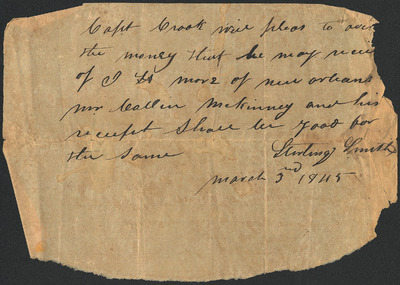 Capt Crook will pleas to
the money that he may
of J more of new orleans
mr Callen McKinney and his
receipt Shall be good for
the Same Sterling Smith
march 3rd 1845